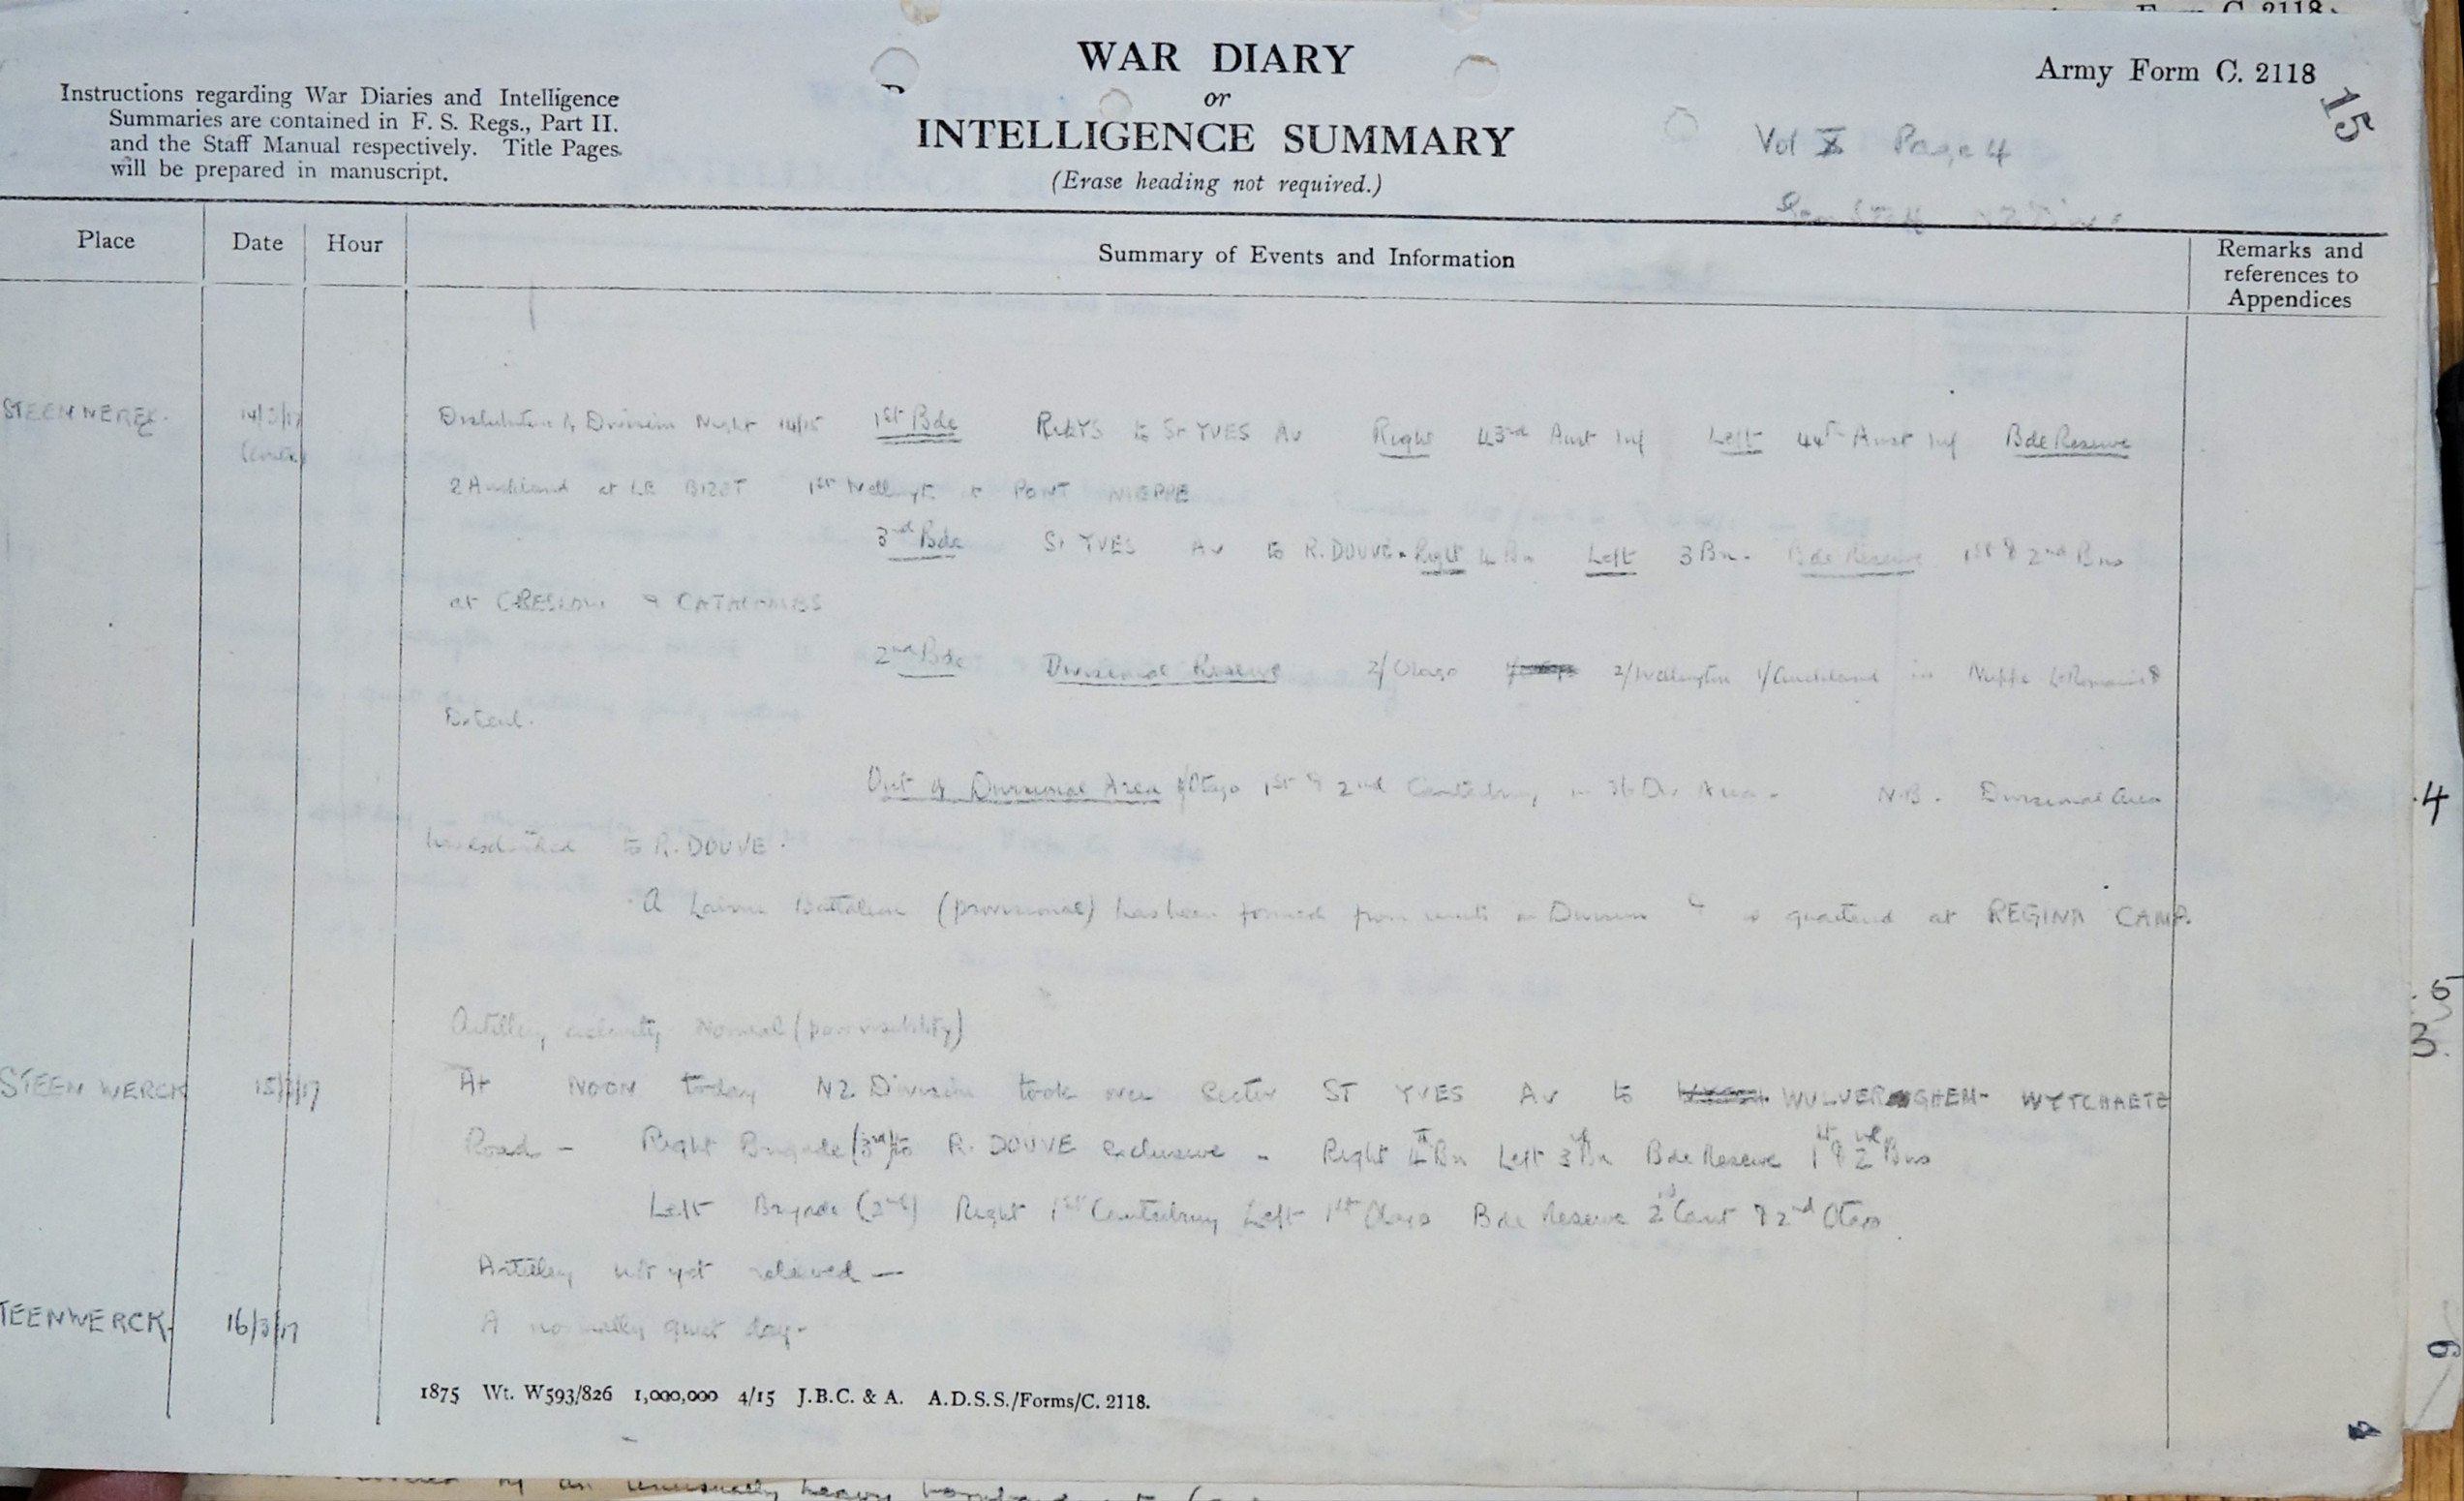 Form C. 2118.
WAR DIARY
or
INTELLIGENCE SUMMARY
(Erase heading not required.)
Army Form C. 2118
15
Instructions regarding War Diaries and Intelligence
Summaries are contained in F. S. Regs., Part II.
and the Staff Manual respectively. Title Pages
will be prepared in manuscript.
Vol X Page 4
Place
Date
Hour
Summary of Events and Information
Remarks and
references to
Appendices
14/3/17
Division Night 14/15 1st Bde to St YVES Av Right 43rd Aust Inf Left 44th Aust Inf Bde Reserve
2 Auckland at LE BIZET 1st PONT NIEPPE
3rd Bde St YVES Av to R. DOUVE. Right 4 Bn Left 3 Bn. Bde Reserve 1st & 2nd Bns
at & CATACOMBS
2nd Bde Divisional Reserve 2/Otago 2/Wellington 1/Auckland in
Out of Divisional Area Otago 1st & 2nd Canterbury Area. N.B. Divisional Area
to R. DOUVE.
A Battalion (provisional) has been formed from units quartered at REGINA CAMP.
Artillery activity Normal (poor visibility)
STEENWERCK 15/3/17 At NOON today NZ Division took over Sector ST YVES Av to WULVERGHEM- WYTCHAETE
Road - Right Brigade (3rd) to R. DOUVE exclusive - Right 4th Bn Left 3rd Bn Bde Reserve 1st & 2nd Bns
Left Brigade (2nd) Right 1st Canterbury Left 1st Otago Bde Reserve 2nd Cant & 2nd Otago.
Artillery not yet relieved —
TEENWERCK. 16/3/17 A normally quiet day-
1875 Wt. W593/826 1,000,000 4/15 J.B.C. & A. A.D.S.S./Forms/C. 2118.
.4
.5
3.
by an unusually heavy